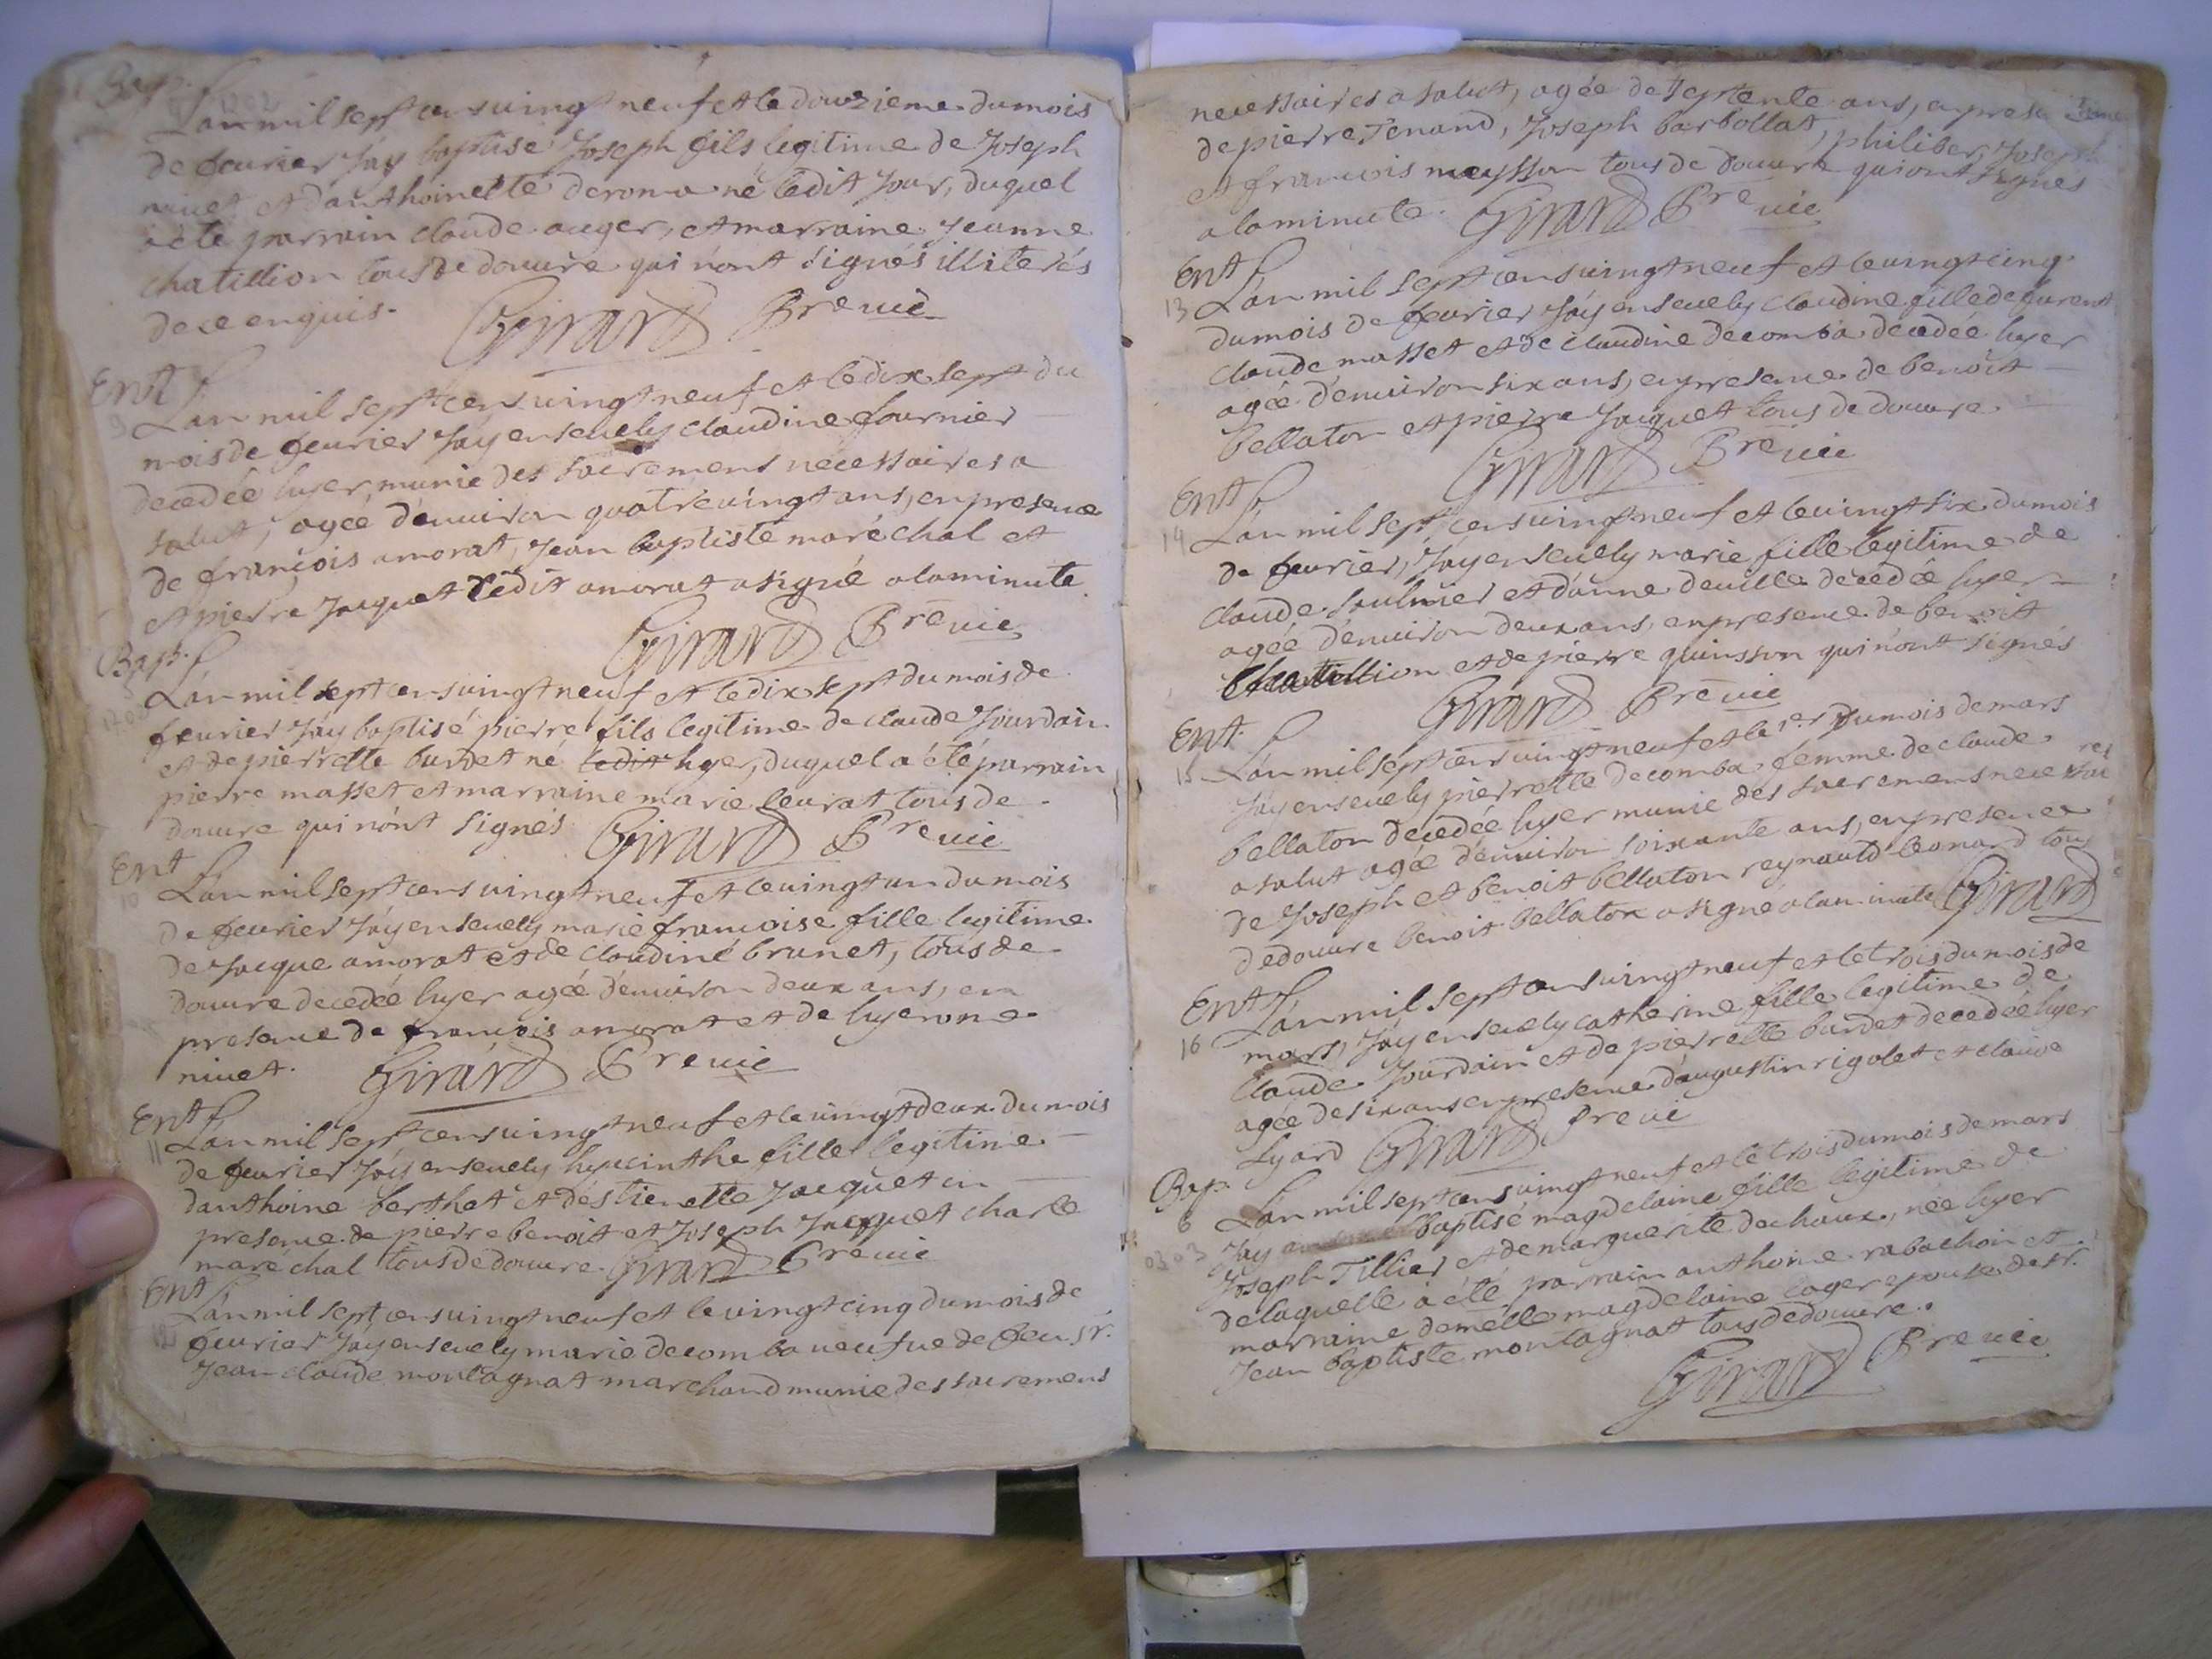 Bap.
Lan mil sept cens vingt neuf et le douzieme du mois
de feurier Jáy baptisé Joseph fils legitime de Joseph
niuet et danthoinette deroma né ledit Jour, duquel
a été parrain claude auger, et marraine Jeanne
chatillion tous de douure qui nont signés illiterés
de ce enquis.
Girard Pre vic
Ent
9
Lan mil sept cens vingt neuf et le dix sept du
mois de feurier Jáy ensevely claudine fournier
decedée hyer, munie des sacremens necessaires a
salut, agée dénuiron quatre vingt ans, en presence
de françois amorat, Jean baptiste maréchal et
et pierre Jacquet ledit amorat a signé a la minute
Girard Pre vic
Bap.
Lán mil sept cens vingt neuf et le dix sept du mois de
feurier Jáy baptisé pierre fils legitime de claude Jourdain
et de pierrette burdet né ledit hyer, duquel a été parrain
pierre masset et marraine marie leurat tous de
douure qui nónt signés Girard Pre vic
Ent
10
Lán mil sept cens vingt neuf et le vingt un du mois
de feurier Jáy ensevely marie françoise fille legitime
de Jacque amorat et de claudine brunet, tous de
douure decedée hyer agée dénuiron deux ans, en
presence de françois amorat et de hyerome
niuet. Girard Pre vic
Ent
11
Lán mil sept cens vingt neuf et le vingt deux du mois
de feurier Jáy ensevely hyacinthe fille legitime
danthoine berthet et déstienette Jacquet en
presence de pierre benoit et Joseph Jacquet charle
maréchal tous de douure. Girard Pre vic
Ent
12
Lán mil sept cens vingt neuf et le vingt cinq du mois de
feurier Jáy ensevely marie decomba veufue de feu sr.
Jean claude montagnat marchand munie des sacremens
necessaires a salut, agée de septente ans, en presence
de pierre Tenand, Joseph barbollat, philiber, Joseph
et francois meysson tous de douure qui ont signés
a la minute. Girard Pre vic
Ent
13
Lán mil sept cens vingt neuf et le vingt cinq
du mois de feurier Jáy ensevely claudine fille de
claude masset et de claudine decomba decedée hyer
agée dénuiron six ans, en presence de benoit
bellaton et pierre Jacquet tous de douure.
Girard Pre vic
Ent
14
Lán mil sept cens vingt neuf et le vingt six du mois
de feurier, Jáy ensevely marie fille legitime de
claude saulnier et dánne deville decedée hyer
agée dénuiron deux ans, en presence de benoit
chatillion et de pierre quinsson qui nónt signés
Girard Pre vic
Ent.
15
Lán mil sept cens vingt neuf et le 1er du mois de mars
Jáy ensevely pierrette decomba femme de claude
bellaton decedée hyer munie des sacremens necessaires
a salut agée dénuiron soixante ans, en presence
de Joseph et benoit bellaton reynauld leonard tous
de douure benoit bellaton a signé a la minute Girard
Ent
16
Lán mil sept cens vingt neuf et le trois du mois de
mars, Jáy ensevely catherine fille legitime de
claude Jourdain et de pierrette burdet decedée hyer
agée de six ans en presence daugustin rigolet et claude
Lyard Girard Pre vic
Bap.
6
Lán mil sept cens vingt neuf et le trois du mois de mars
Jáy baptisé magdelaine fille legitime de
Joseph Tillier et de marguerite dechaux, née hyer
de laquelle a été parrain anthoine rabachon et
marraine demelle magdelaine cager epouse de sr.
Jean baptiste montagnat tous de douure.
Girard Pre vic